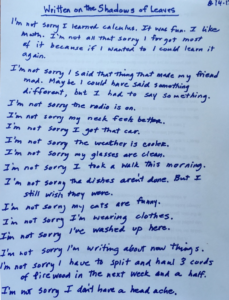 Written on the Shadows of Leaves
8-14-1
I'm not sorry I learned calculus. It was fun. I like
math. I'm not all that sorry I forgot most
of it because if I wanted to I could learn it
again.
I'm not sorry I said that thing that made my friend
mad. Maybe I could have said something
different, but I had to say something.
I'm not sorry the radio is on.
I'm not sorry my neck feels better.
I'm not sorry I got that car.
I'm not sorry the weather is cooler.
I'm not sorry my glasses are clean.
I'm not sorry I took a walk this morning.
I'm not sorry the dishes aren't done. But I
still wish they were.
I'm not sorry my cats are funny.
I'm not sorry I'm wearing clothes.
I'm not sorry I've washed up here.
I'm not sorry I'm writing about new things.
I'm not sorry I have to split and haul 3 cords
of firewood in the next week and a half.
I'm not sorry I don't have a head ache.